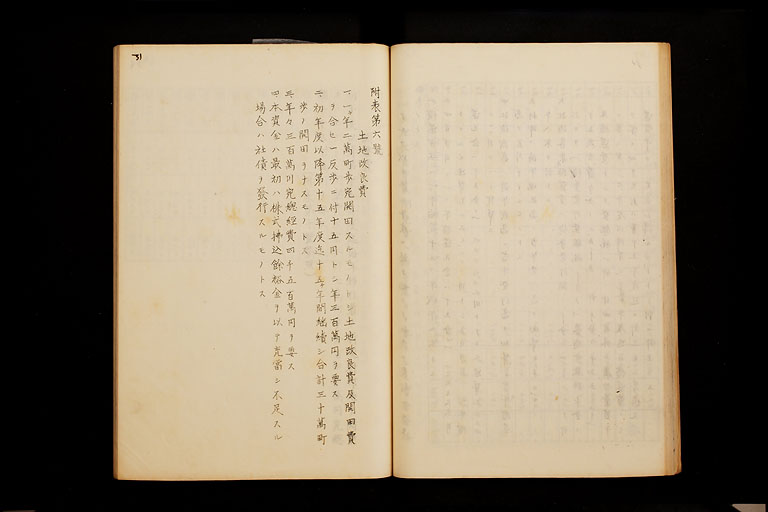 附表第六號
土地改良費
一、一年二萬町步宛開田スルモノトシ土地改良費及開田費
ヲ合セ一反步ニ付十五円トシ一年三百萬円ヲ要ス
二、初年度以降第十五年度迄十五年間継續シ合計三十萬町
步ノ開田ヲナスモノトス
三、年々三百萬円宛總経費四千五百萬円ヲ要ス
四、本資金ハ最初ハ株式拂込餘裕金ヲ以テ充當シ不足スル
場合ハ社債ヲ發行スルモノトス
31